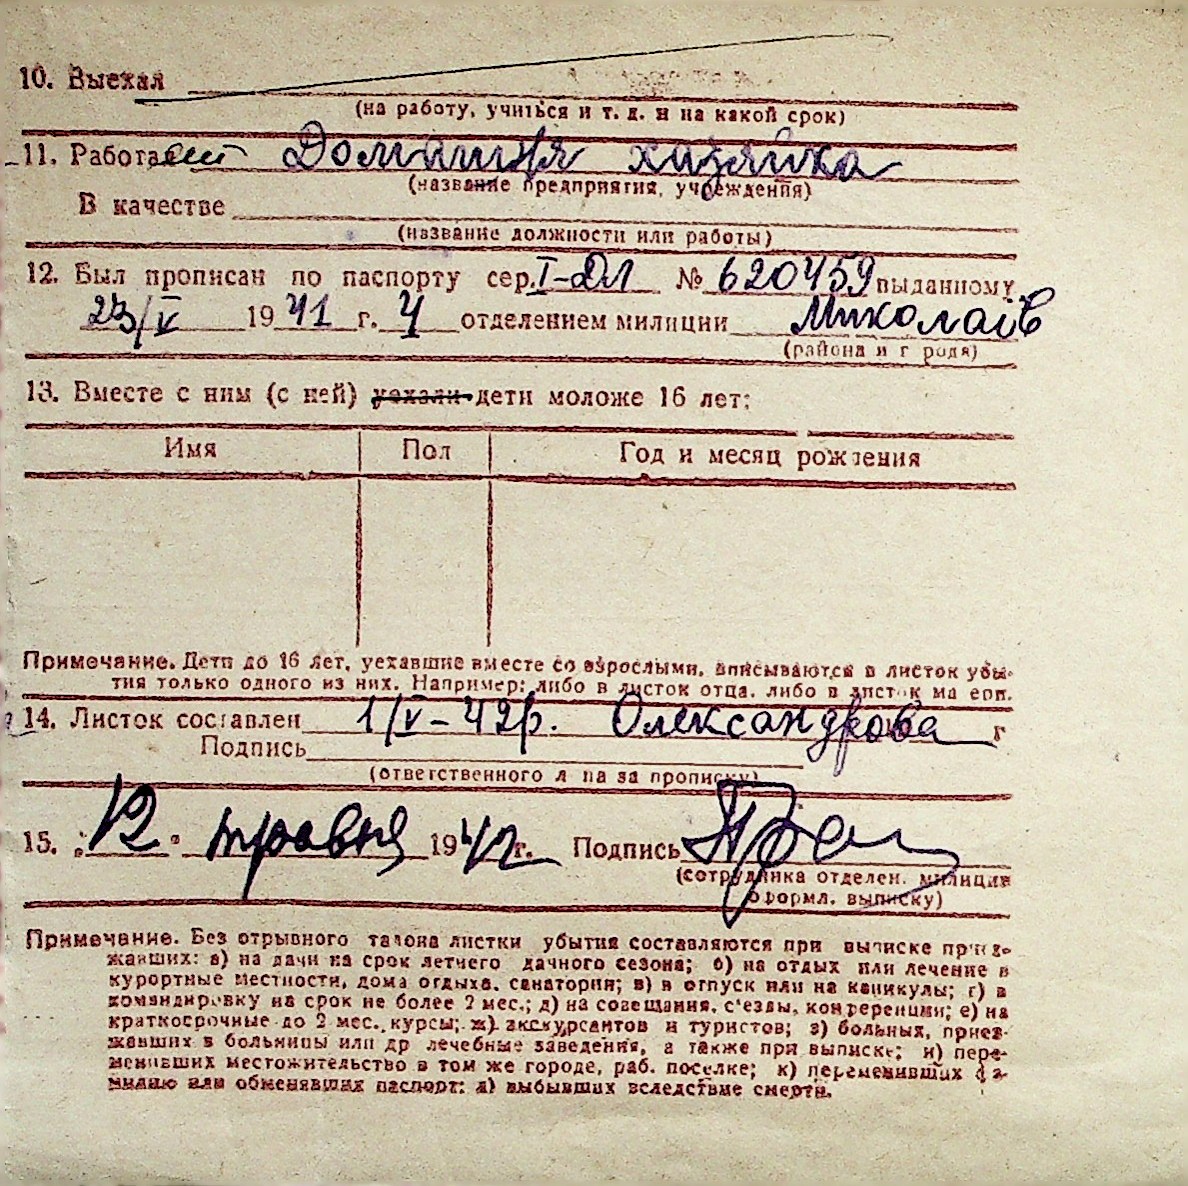 10. Выехал
(на работу, учиться и т. д. и на какой срок)
11. Работает Домашня хазяйка
(название предприятия, учреждения)
В качестве
(название должности или работы)
12. Был прописан по паспорту сер. I-ДЛ № 620459 выданному
23/V 1941 г. 4 отделением милиции Миколаів
(района и г рода)
13. Вместе с ним (с ней) уехали дети моложе 16 лет:
Имя Пол Год и месяц рождения
Примечание. Дети до 16 лет, уехавшие вместе со взрослыми, вписываются в листок убы-
тия только одного из них. Например: либо в листок отца, либо в листок ма ери.
14. Листок составлен 1/V-42р. Олександрова г
Подпись
(ответственного л ца за прописку)
15. „12" травня 1942 г. Подпись
(сотрудника отделен. милиции
оформл. выписку)
Примечание. Без отрывного талона листки убытия составляются при выписке приез-
жавших: а) на дачи на срок летнего дачного сезона; б) на отдых или лечение в
курортные местности, дома отдыха, санатории; в) в отпуск или на каникулы; г) в
командировку на срок не более 2 мес.; д) на совещания, с'езды, конференции; е) на
краткосрочные до 2 мес. курсы; ж) экскурсантов и туристов; з) больных, приез-
жавших в больницы или др лечебные заведения, а также при выписке; и) пере-
менивших местожительство в том же городе, раб. поселке; к) переменивших фа-
милию или обменявших паспорт; л) выбывших вследствие смерти.